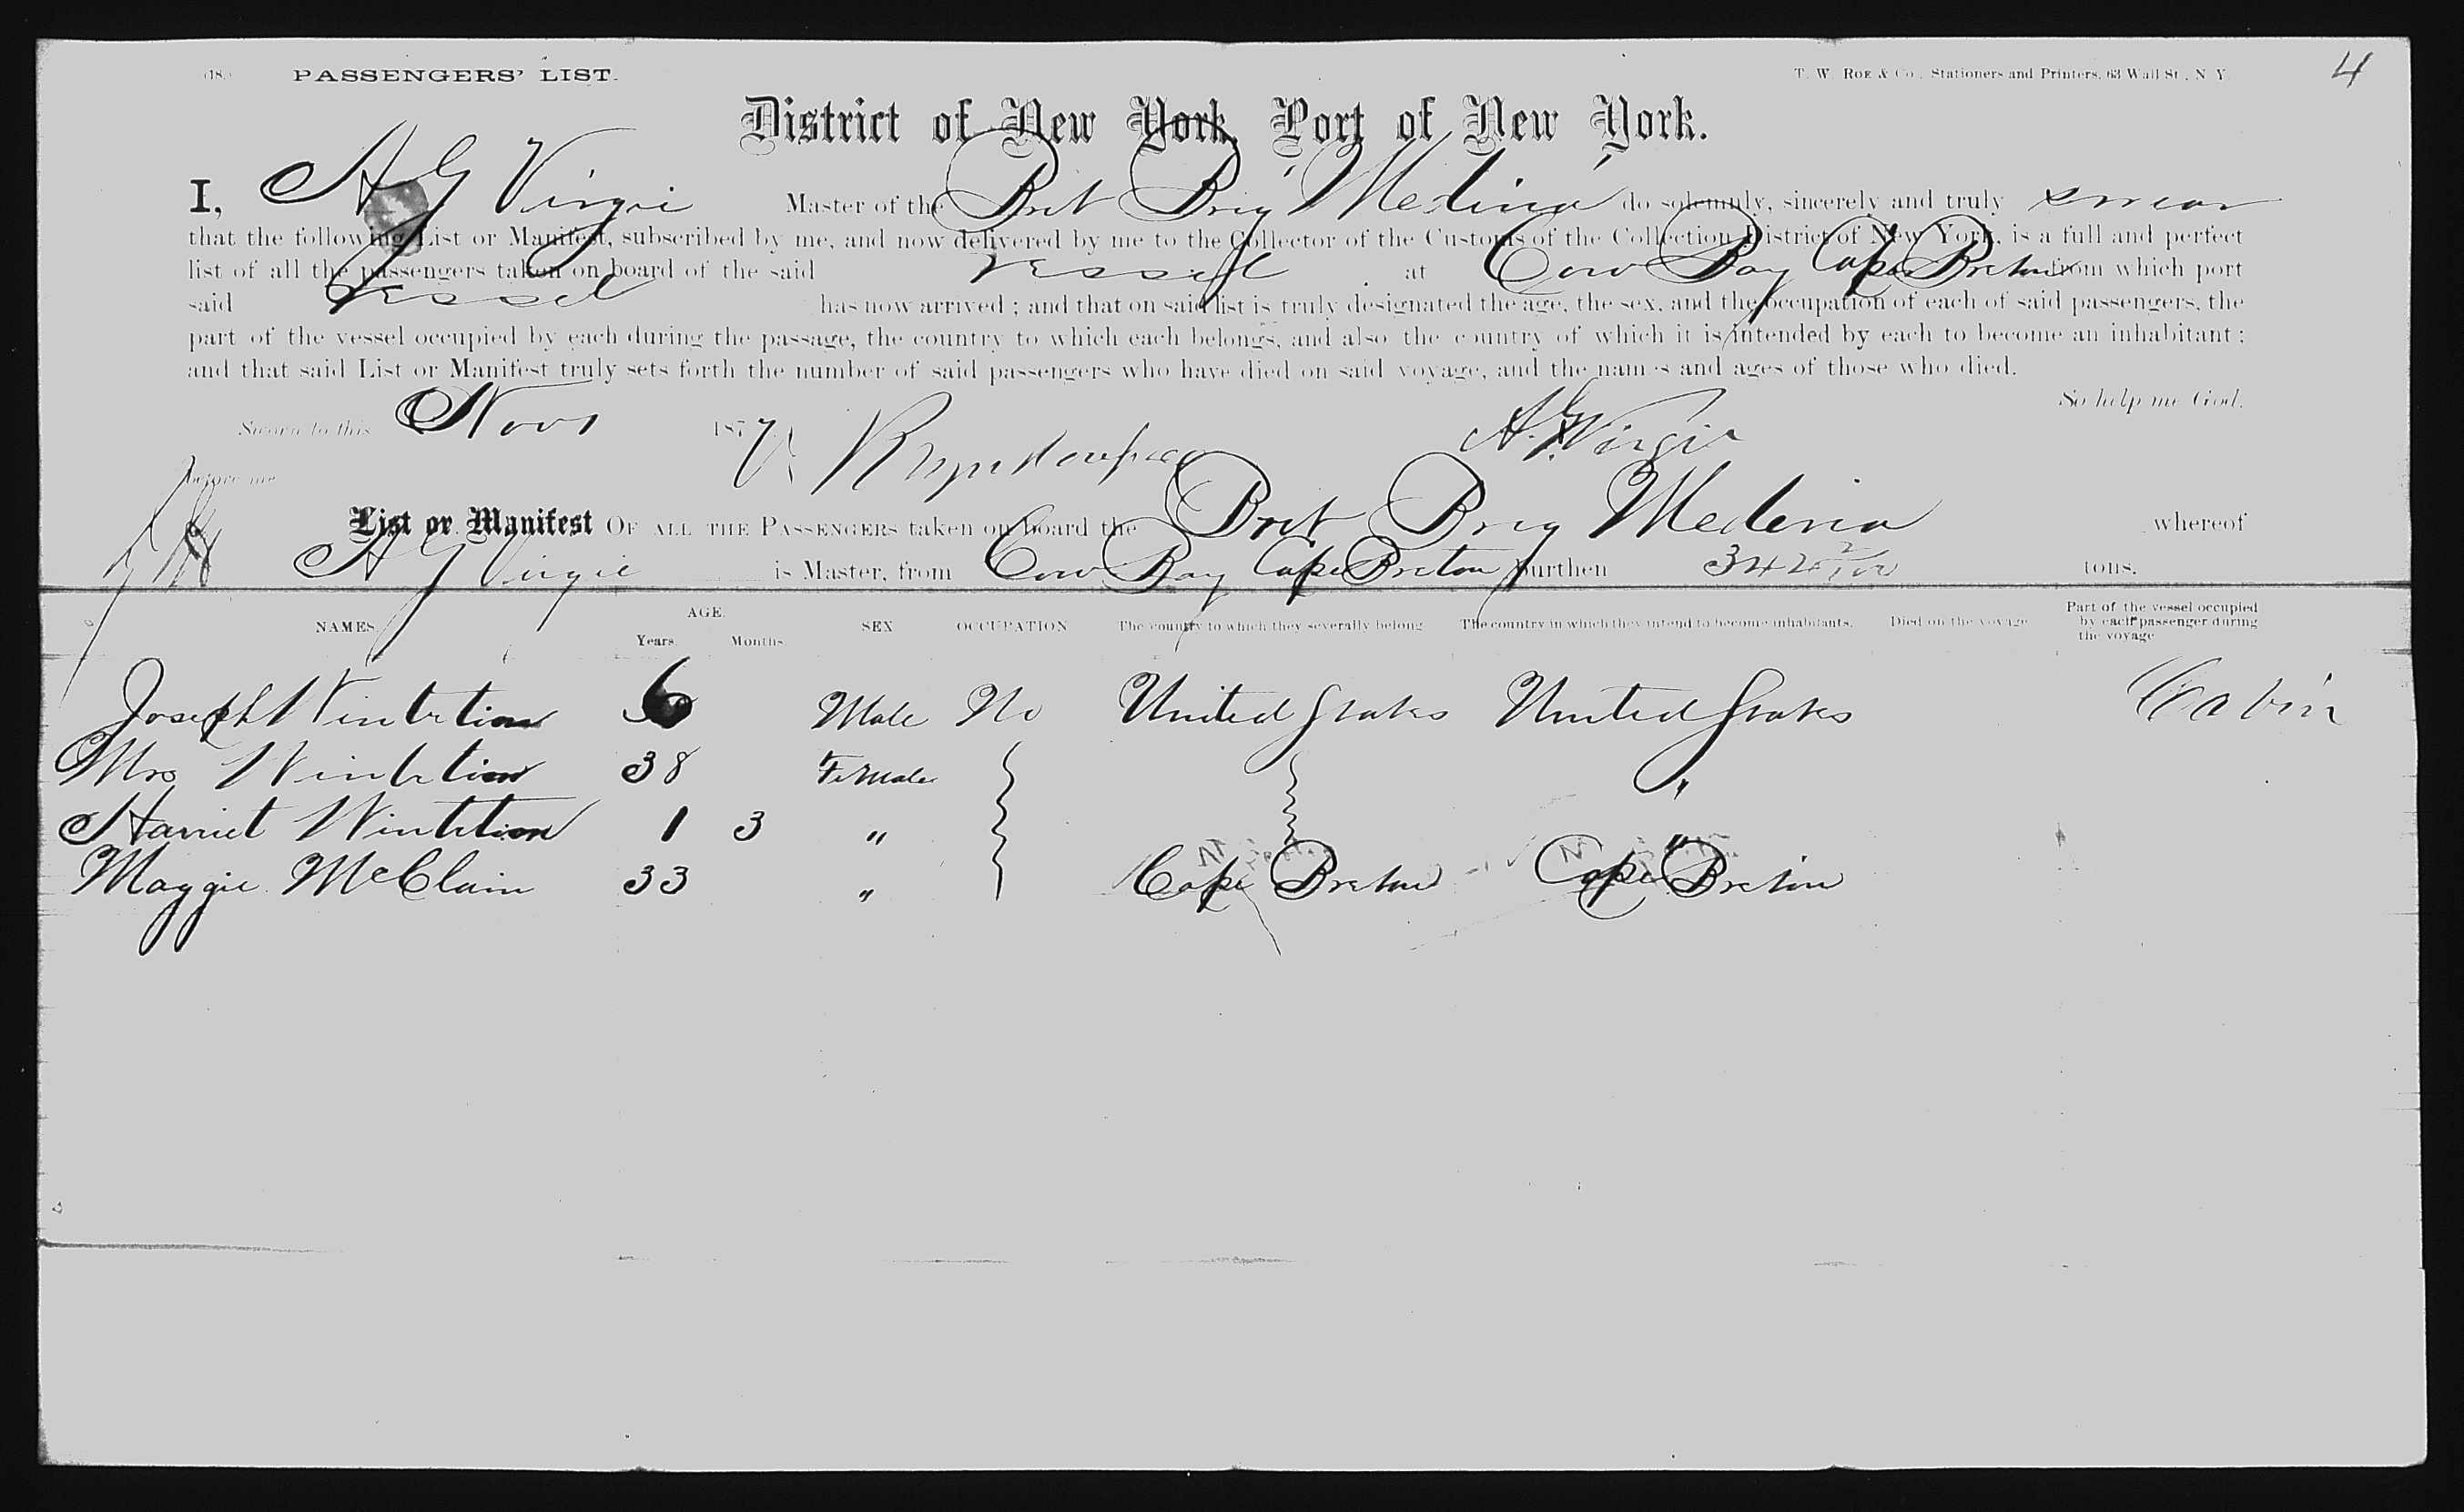 (18.) PASSENGERS' LIST. T. W. ROE & Co., Stationers and Printers, 63 Wall St., N. Y. 4
District of New York, Port of New York.
I, A G Virgie Master of the Brit Brig "Medina" do solemnly, sincerely and truly swear
that the following List or Manifest, subscribed by me, and now delivered by me to the Collector of the Customs of the Collection District of New York, is a full and perfect
list of all the passengers taken on board of the said Vessel at Cow Bay Cape Breton from which port
said Vessel has now arrived; and that on said list is truly designated the age, the sex, and the occupation of each of said passengers, the
part of the vessel occupied by each during the passage, the country to which each belongs, and also the country of which it is intended by each to become an inhabitant;
and that said List or Manifest truly sets forth the number of said passengers who have died on said voyage, and the names and ages of those who died.
So help me God.
Sworn to this Nov 1 1877 A. G. Virgie
before me
List or Manifest OF ALL THE PASSENGERS taken on board the Brit Brig Medina whereof
A G Virgie is Master, from Cow Bay Cape Breton burthen 342 2/100 tons.
NAMES. AGE. Years. Months. SEX OCCUPATION The country to which they severally belong The country in which they intend to become inhabitants. Died on the voyage Part of the vessel occupied by each passenger during the voyage
Joseph 6 Male No United States United States Cabin
Mrs 38 Female "
Harriet 1 3 " "
Maggie McClain 33 " Cape Breton Cape Breton